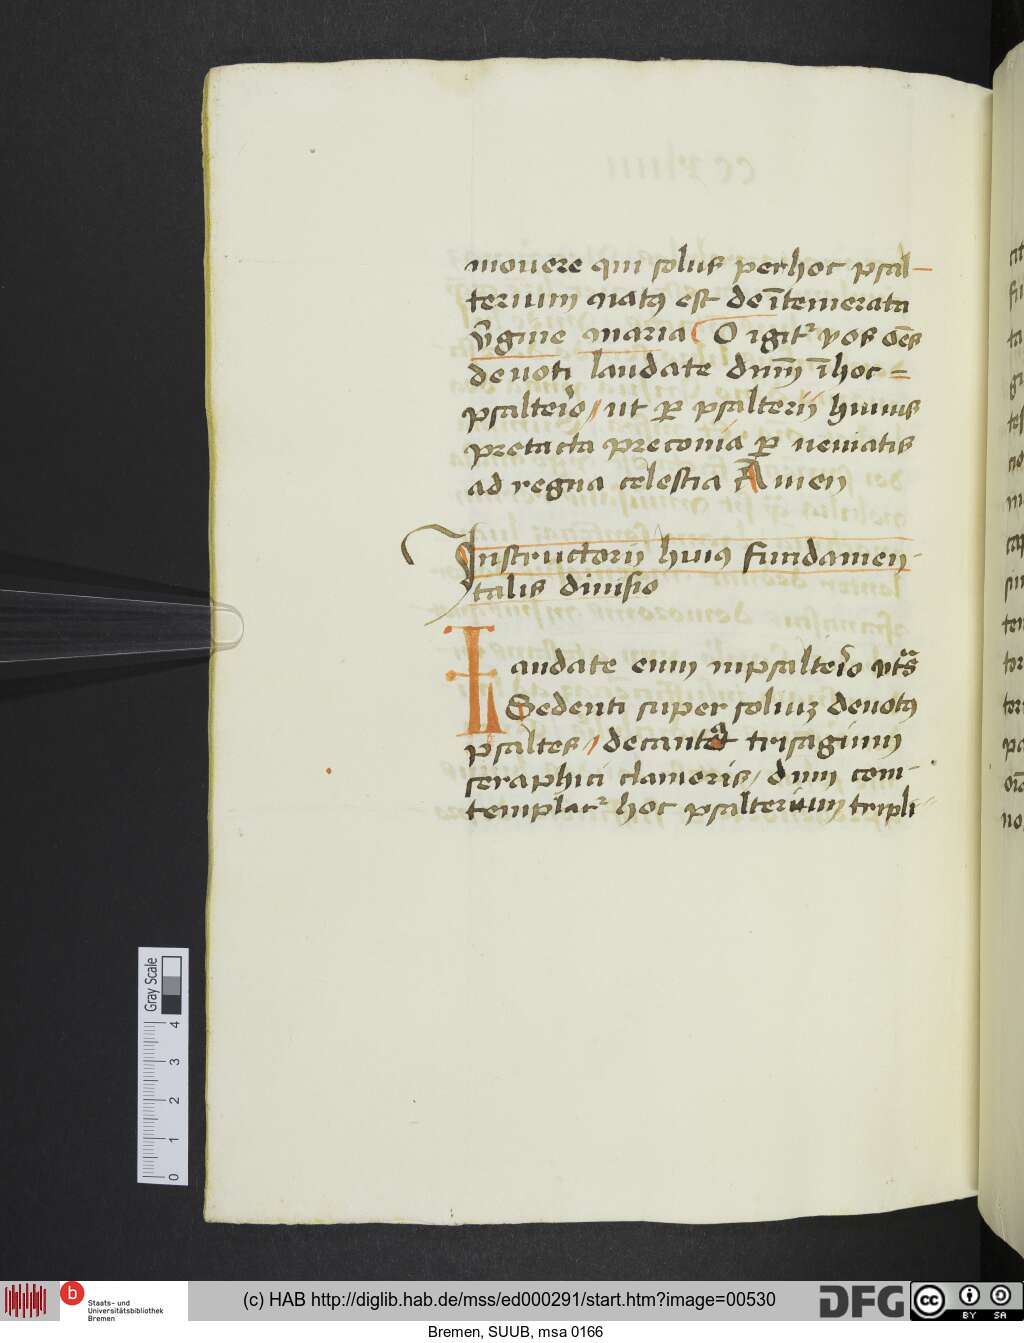 movere qui solus per hoc psal-
terium natꝰ est de ītemerata
v̄gine maria O igitᷣ vos oēs
devoti laudate dnm̄ ī hoc =
psalteīo / ut ꝑ psalterij huius
pretacta preconia ꝑ veniatis
ad regna celestia Amen
Instructorij huiꝰ fundamen-
talis divisio
Laudate eum in psalteīo vt̄s
Sedenti super soliuꝫ devotꝰ
psaltes / decantat trisagium
seraphici clamoris / dum com-
templatᷣ hoc psalterium tripli
Gray Scale
0 1 2 3 4
b Staats- und
Universitätsbibliothek
Bremen
(c) HAB http://diglib.hab.de/mss/ed000291/start.htm?image=00530
DFG
cc BY SA
Bremen, SUUB, msa 0166